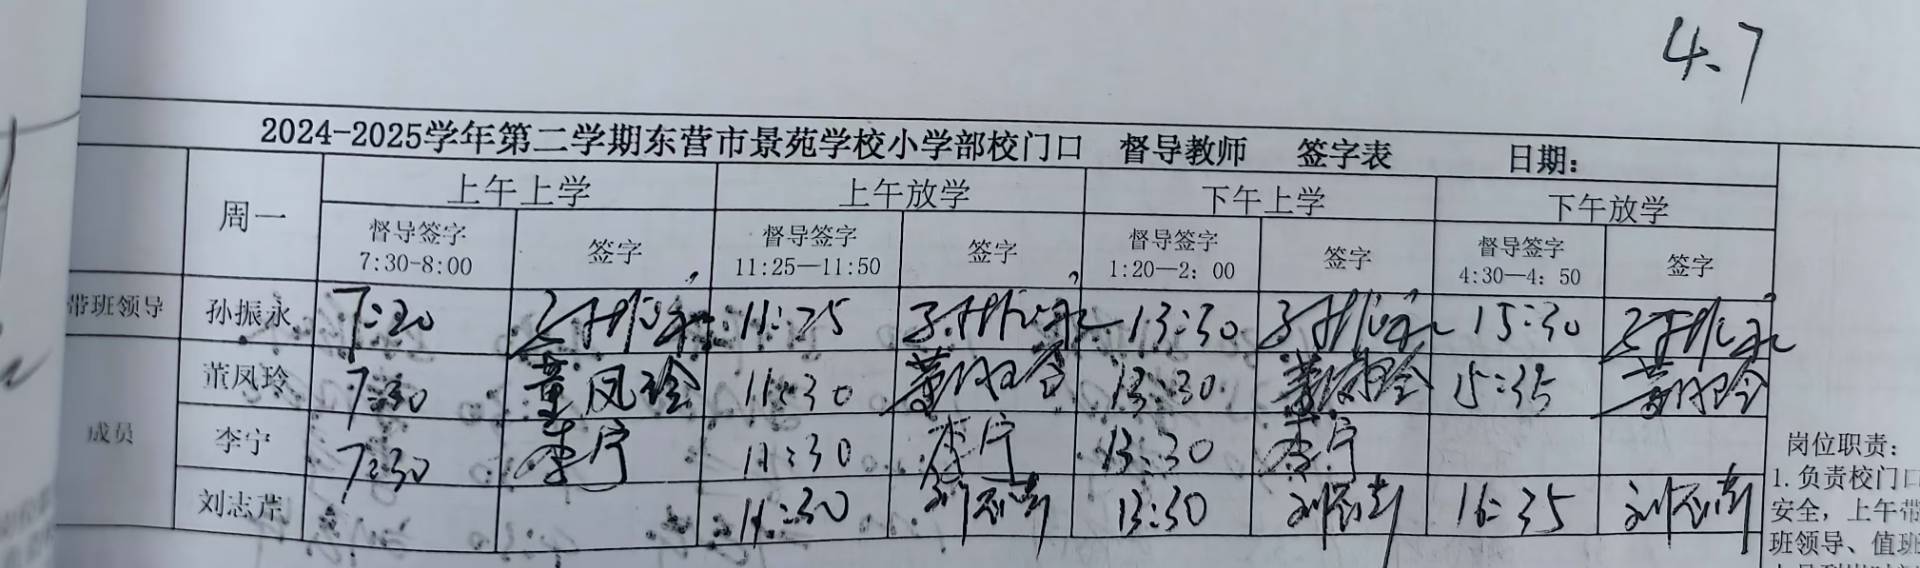 4.7
2024-2025学年第二学期东营市景苑学校小学部校门口 督导教师 签字表 日期:
周一 上午上学 上午放学 下午上学 下午放学
督导签字 签字 督导签字 签字 督导签字 签字 督导签字 签字
7:30-8:00 11:25—11:50 1:20—2: 00 4:30—4: 50
带班领导 孙振永 7:20 孙振永 11:25 孙振永 13:30 孙振永 15:30 孙振永
董凤玲 7:30 董凤玲 11:30 董凤玲 13:30 董凤玲 15:35 董凤玲
成员 李宁 7:30 李宁 11:30 李宁 13:30 李宁
刘志芹 11:30 刘志芹 13:30 刘志芹 16:35 刘志芹
岗位职责:
1.负责校门口
安全，上午带
班领导、值班